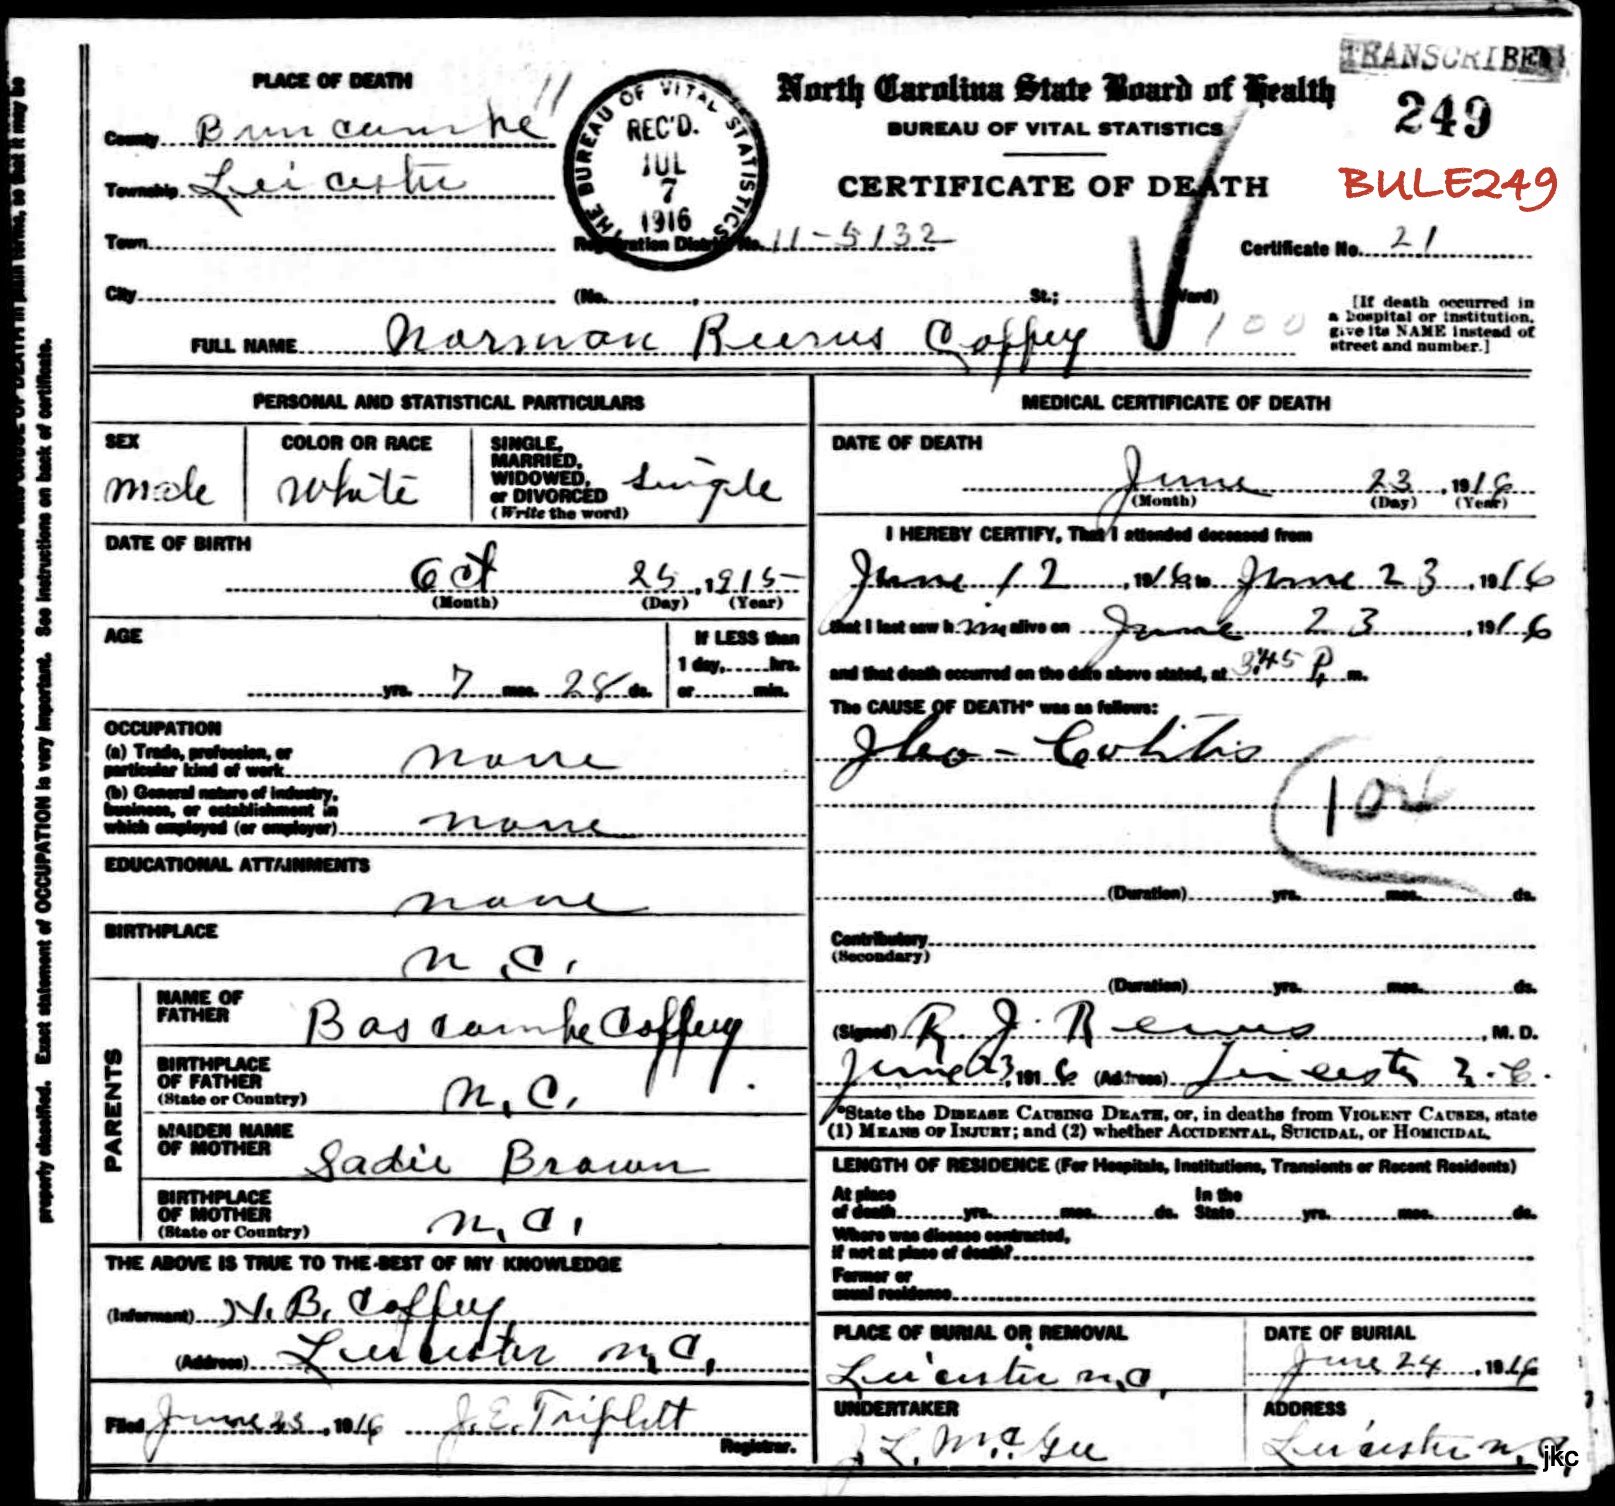 TRANSCRIBED
PLACE OF DEATH
County Buncombe 11
Township Leicester
Town
City
THE BUREAU OF VITAL STATISTICS
REC'D.
JUL
7
1916
North Carolina State Board of Health
BUREAU OF VITAL STATISTICS
CERTIFICATE OF DEATH
249
BULE249
Registration District No. 11-5132
Certificate No. 21
(No. , St.; Ward)
[If death occurred in
a hospital or institution,
give its NAME instead of
street and number.]
FULL NAME Norman Coffey
100
PERSONAL AND STATISTICAL PARTICULARS
SEX
male
COLOR OR RACE
white
SINGLE,
MARRIED,
WIDOWED,
or DIVORCED
(Write the word)
Single
DATE OF BIRTH
Oct 25, 1915
(Month) (Day) (Year)
AGE
yrs. 7 mos. 28 ds.
If LESS than
1 day, hrs.
or min.
OCCUPATION
(a) Trade, profession, or
particular kind of work none
(b) General nature of industry,
business, or establishment in
which employed (or employer) none
EDUCATIONAL ATTAINMENTS
none
BIRTHPLACE
N.C.
PARENTS
NAME OF
FATHER
Bascombe Coffey
BIRTHPLACE
OF FATHER
(State or Country)
N.C.
MAIDEN NAME
OF MOTHER
Sadie Brown
BIRTHPLACE
OF MOTHER
(State or Country)
N.C.
THE ABOVE IS TRUE TO THE BEST OF MY KNOWLEDGE
(Informant) B. Coffey
(Address) Leicester N.C.
Filed June 23, 1916 J.E. Triplett
Registrar.
MEDICAL CERTIFICATE OF DEATH
DATE OF DEATH
June 23, 1916
(Month) (Day) (Year)
I HEREBY CERTIFY, That I attended deceased from
June 12, 1916 to June 23, 1916
that I last saw him alive on June 23, 1916
and that death occurred on the date above stated, at 3:45 P. m.
The CAUSE OF DEATH* was as follows:
Ileo-Colitis
104
(Duration) yrs. mos. ds.
Contributory
(Secondary)
(Duration) yrs. mos. ds.
(Signed) R. J. , M. D.
June 23, 1916 (Address) Leicester N.C.
*State the DISEASE CAUSING DEATH, or, in deaths from VIOLENT CAUSES, state
(1) MEANS OF INJURY; and (2) whether ACCIDENTAL, SUICIDAL, or HOMICIDAL.
LENGTH OF RESIDENCE (For Hospitals, Institutions, Transients or Recent Residents)
At place
of death yrs. mos. ds.
In the
State yrs. mos. ds.
Where was disease contracted,
if not at place of death?
Former or
usual residence
PLACE OF BURIAL OR REMOVAL
Leicester N.C.
DATE OF BURIAL
June 24, 1916
UNDERTAKER
J. L. McGee
ADDRESS
Leicester N.C.
properly classified. Exact statement of OCCUPATION is very important. See instructions on back of certificate.
jkc